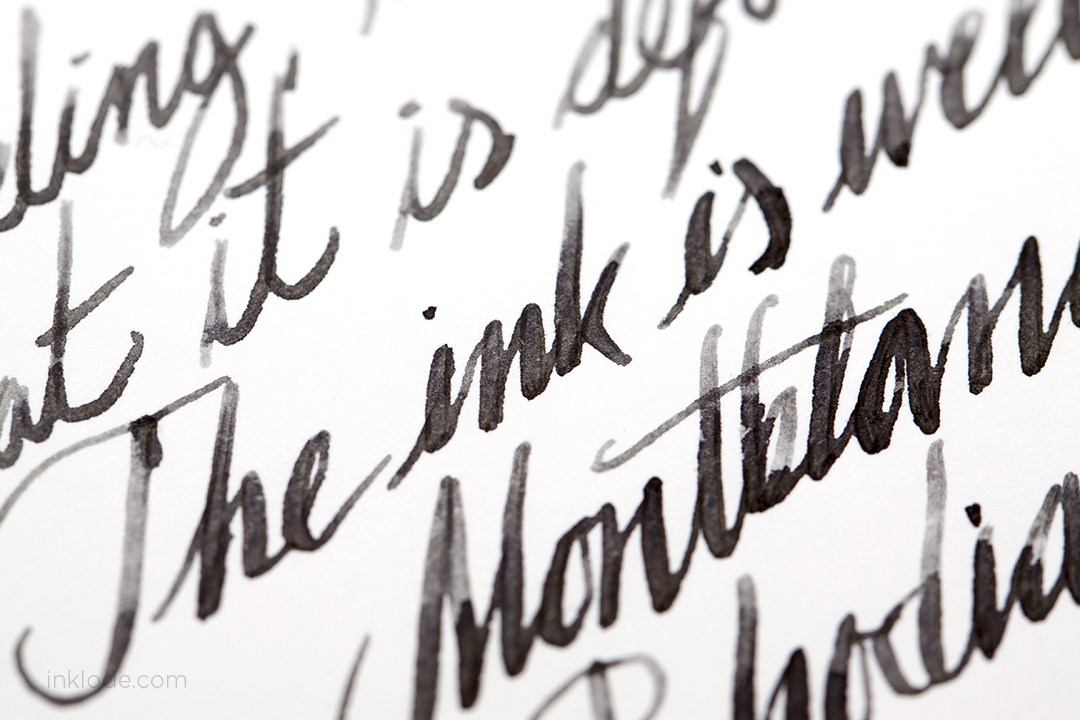 ling
at it is
The ink is
Montblan
Rhodia
inklode.com